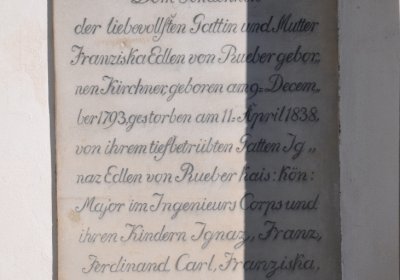 Dem Andenken
der liebevollsten Gattin und Mutter
Franziska Edlen von Rueber gebor,,
nen Kirchner, geboren am 9. Decem,,
ber 1793, gestorben am 11. April 1838,
von ihrem tiefbetrübten Gatten Ig,,
naz Edlen von Rueber kais: kön:
Major im Ingenieurs Corps und
ihren Kindern Ignaz, Franz,
Ferdinand Carl, Franziska,